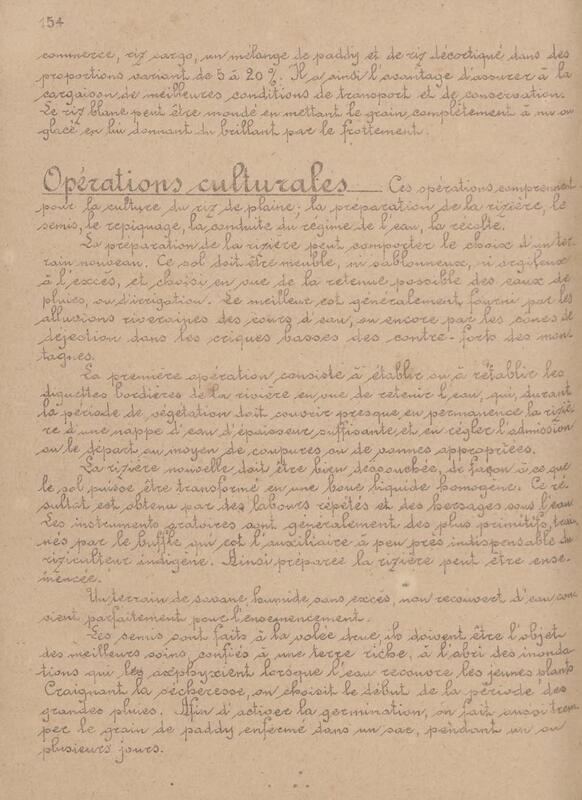 154
commerce, riz cargo, un mélange de paddy et de riz décortiqué dans des
proportions variant de 5 à 20 %. Il a ainsi l'avantage d'assurer à la
cargaison de meilleures conditions de transport et de conservation.
Le riz blanc peut être mondé en mettant le grain complètement à nu ou
glacé en lui donnant du brillant par le frottement.
Opérations culturales Ces opérations comprennent
pour la culture du riz de plaine: la préparation de la rizière, le
semis, le repiquage, la conduite du régime de l'eau, la récolte.
La préparation de la rizière peut comporter le choix d'un ter
rain nouveau. Ce sol doit être meuble, ni sablonneux, ni argileux
à l'excès, et choisi en vue de la retenue possible des eaux de
pluies, ou d'irrigation. Le meilleur est généralement fourni par les
alluvions riveraines des cours d'eau, ou encore par les cônes de
déjection dans les criques basses des contre-forts des mon
tagnes.
La première opération consiste à établir ou à rétablir les
diguettes bordières de la rizière en vue de retenir l'eau, qui, durant
la période de végétation doit couvrir presque en permanence la riziè
re d'une nappe d'eau d'épaisseur suffisante et en régler l'admission
ou le départ au moyen de coupures ou de vannes appropriées.
La rizière nouvelle doit être bien dessouchée, de façon à ce que
le sol puisse être transformé en une boue liquide homogène. Ce ré
sultat est obtenu par des labours répétés et des hersages sous l'eau
Les instruments aratoires sont généralement des plus primitifs, traî
nés par le buffle qui est l'auxiliaire à peu près indispensable du
riziculteur indigène. Ainsi préparée la rizière peut être ense
mencée.
Un terrain de savane humide sans excès, non recouvert d'eau con
vient parfaitement pour l'ensemencement.
Les semis sont faits à la volée drue, ils doivent être l'objet
des meilleurs soins, confiés à une terre riche, à l'abri des inonda
tions qui les asphyxient lorsque l'eau recouvre les jeunes plants
Craignant la sécheresse, on choisit le début de la période des
grandes pluies. Afin d'activer la germination, on fait aussi trem
per le grain de paddy enfermé dans un sac, pendant un ou
plusieurs jours.